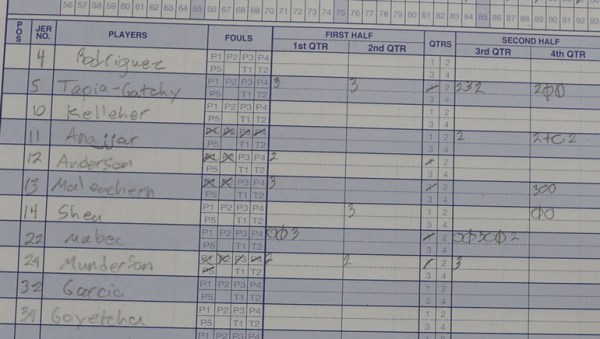 56 57 58 59 60 61 62 63 64 65 66 67 68 69 70 71 72 73 74 75 76 77 78 79 80 81 82 83 84 85 86 87 88 89 90 91 92 93
POS JER NO. PLAYERS FOULS FIRST HALF QTRS SECOND HALF
1st QTR 2nd QTR 3rd QTR 4th QTR
4 Rodriguez P1 P2 P3 P4 1 2
P5 T1 T2 3 4
5 Tapia-Gatchy P1 P2 P3 P4 3 3 2 232
P5 T1 T2 3 4
10 Kelleher P1 P2 P3 P4 1 2
P5 T1 T2 3 4
11 Anajjar 1 2 2
P5 T1 T2 3 4
12 Anderson P3 P4 2 2
P5 T1 T2 3 4
13 P3 P4 3 2 300
P5 T1 T2 3 4
14 Shea P1 P2 P3 P4 3 1 2
P5 T1 T2 3 4
22 Mabec P1 P2 P3 P4 2
P5 T1 T2 3 4
24 Munderson 2 2 3
T1 T2 3 4
32 Garcia P1 P2 P3 P4 1 2
P5 T1 T2 3 4
34 Goyetcha P1 P2 P3 P4 1 2
P5 T1 T2 3 4
P1 P2 P3 P4 1 2